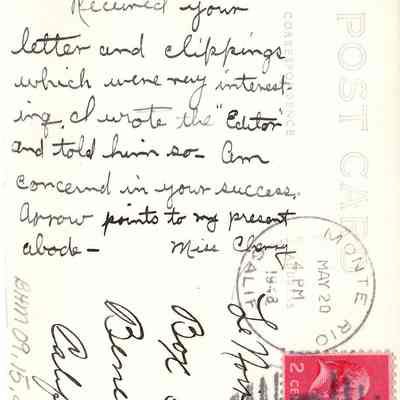 Received your
letter and clippings
which were very interest-
ing. I wrote the "Editor"
and told him so - Am
concernd in your success.
Arrow points to my present
abode - Miss Cheney
POST CARD
CORRESPONDENCE
MONTE RIO
MAY 20
4 PM
1948
CALIF
Box
2 CE